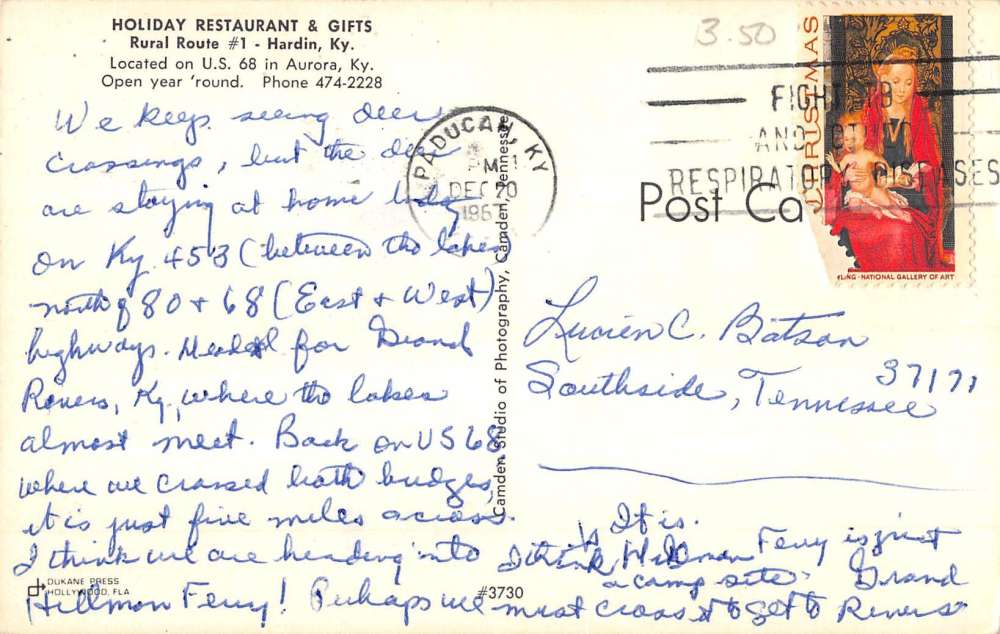 HOLIDAY RESTAURANT & GIFTS
Rural Route #1 - Hardin, Ky.
Located on U.S. 68 in Aurora, Ky.
Open year 'round. Phone 474-2228
3.50
CHRISTMAS
MLING · NATIONAL GALLERY OF ART
PADUCAH, KY
M 1
DEC 20
196
FIGHT TB
AND OTHER
RESPIRATORY DISEASES
Post Ca
We keep seeing deer
crossings, but the deer
are staying at home today
on Ky. 453 (between the lakes
north of 80 & 68 (East & West)
highways. Headed for Grand
Rivers, Ky., where the lakes
almost meet. Back on US 68
where we crossed both bridges,
it is just five miles across.
I think we are heading into
Hillman Ferry! Perhaps we must cross it to get to Grand Rivers
It is.
I think Hillman Ferry is just
a camp site.
Camden Studio of Photography, Camden, Tennessee
Lucien C. Batson
Southside, Tennessee
37171
DUKANE PRESS
HOLLYWOOD, FLA
#3730